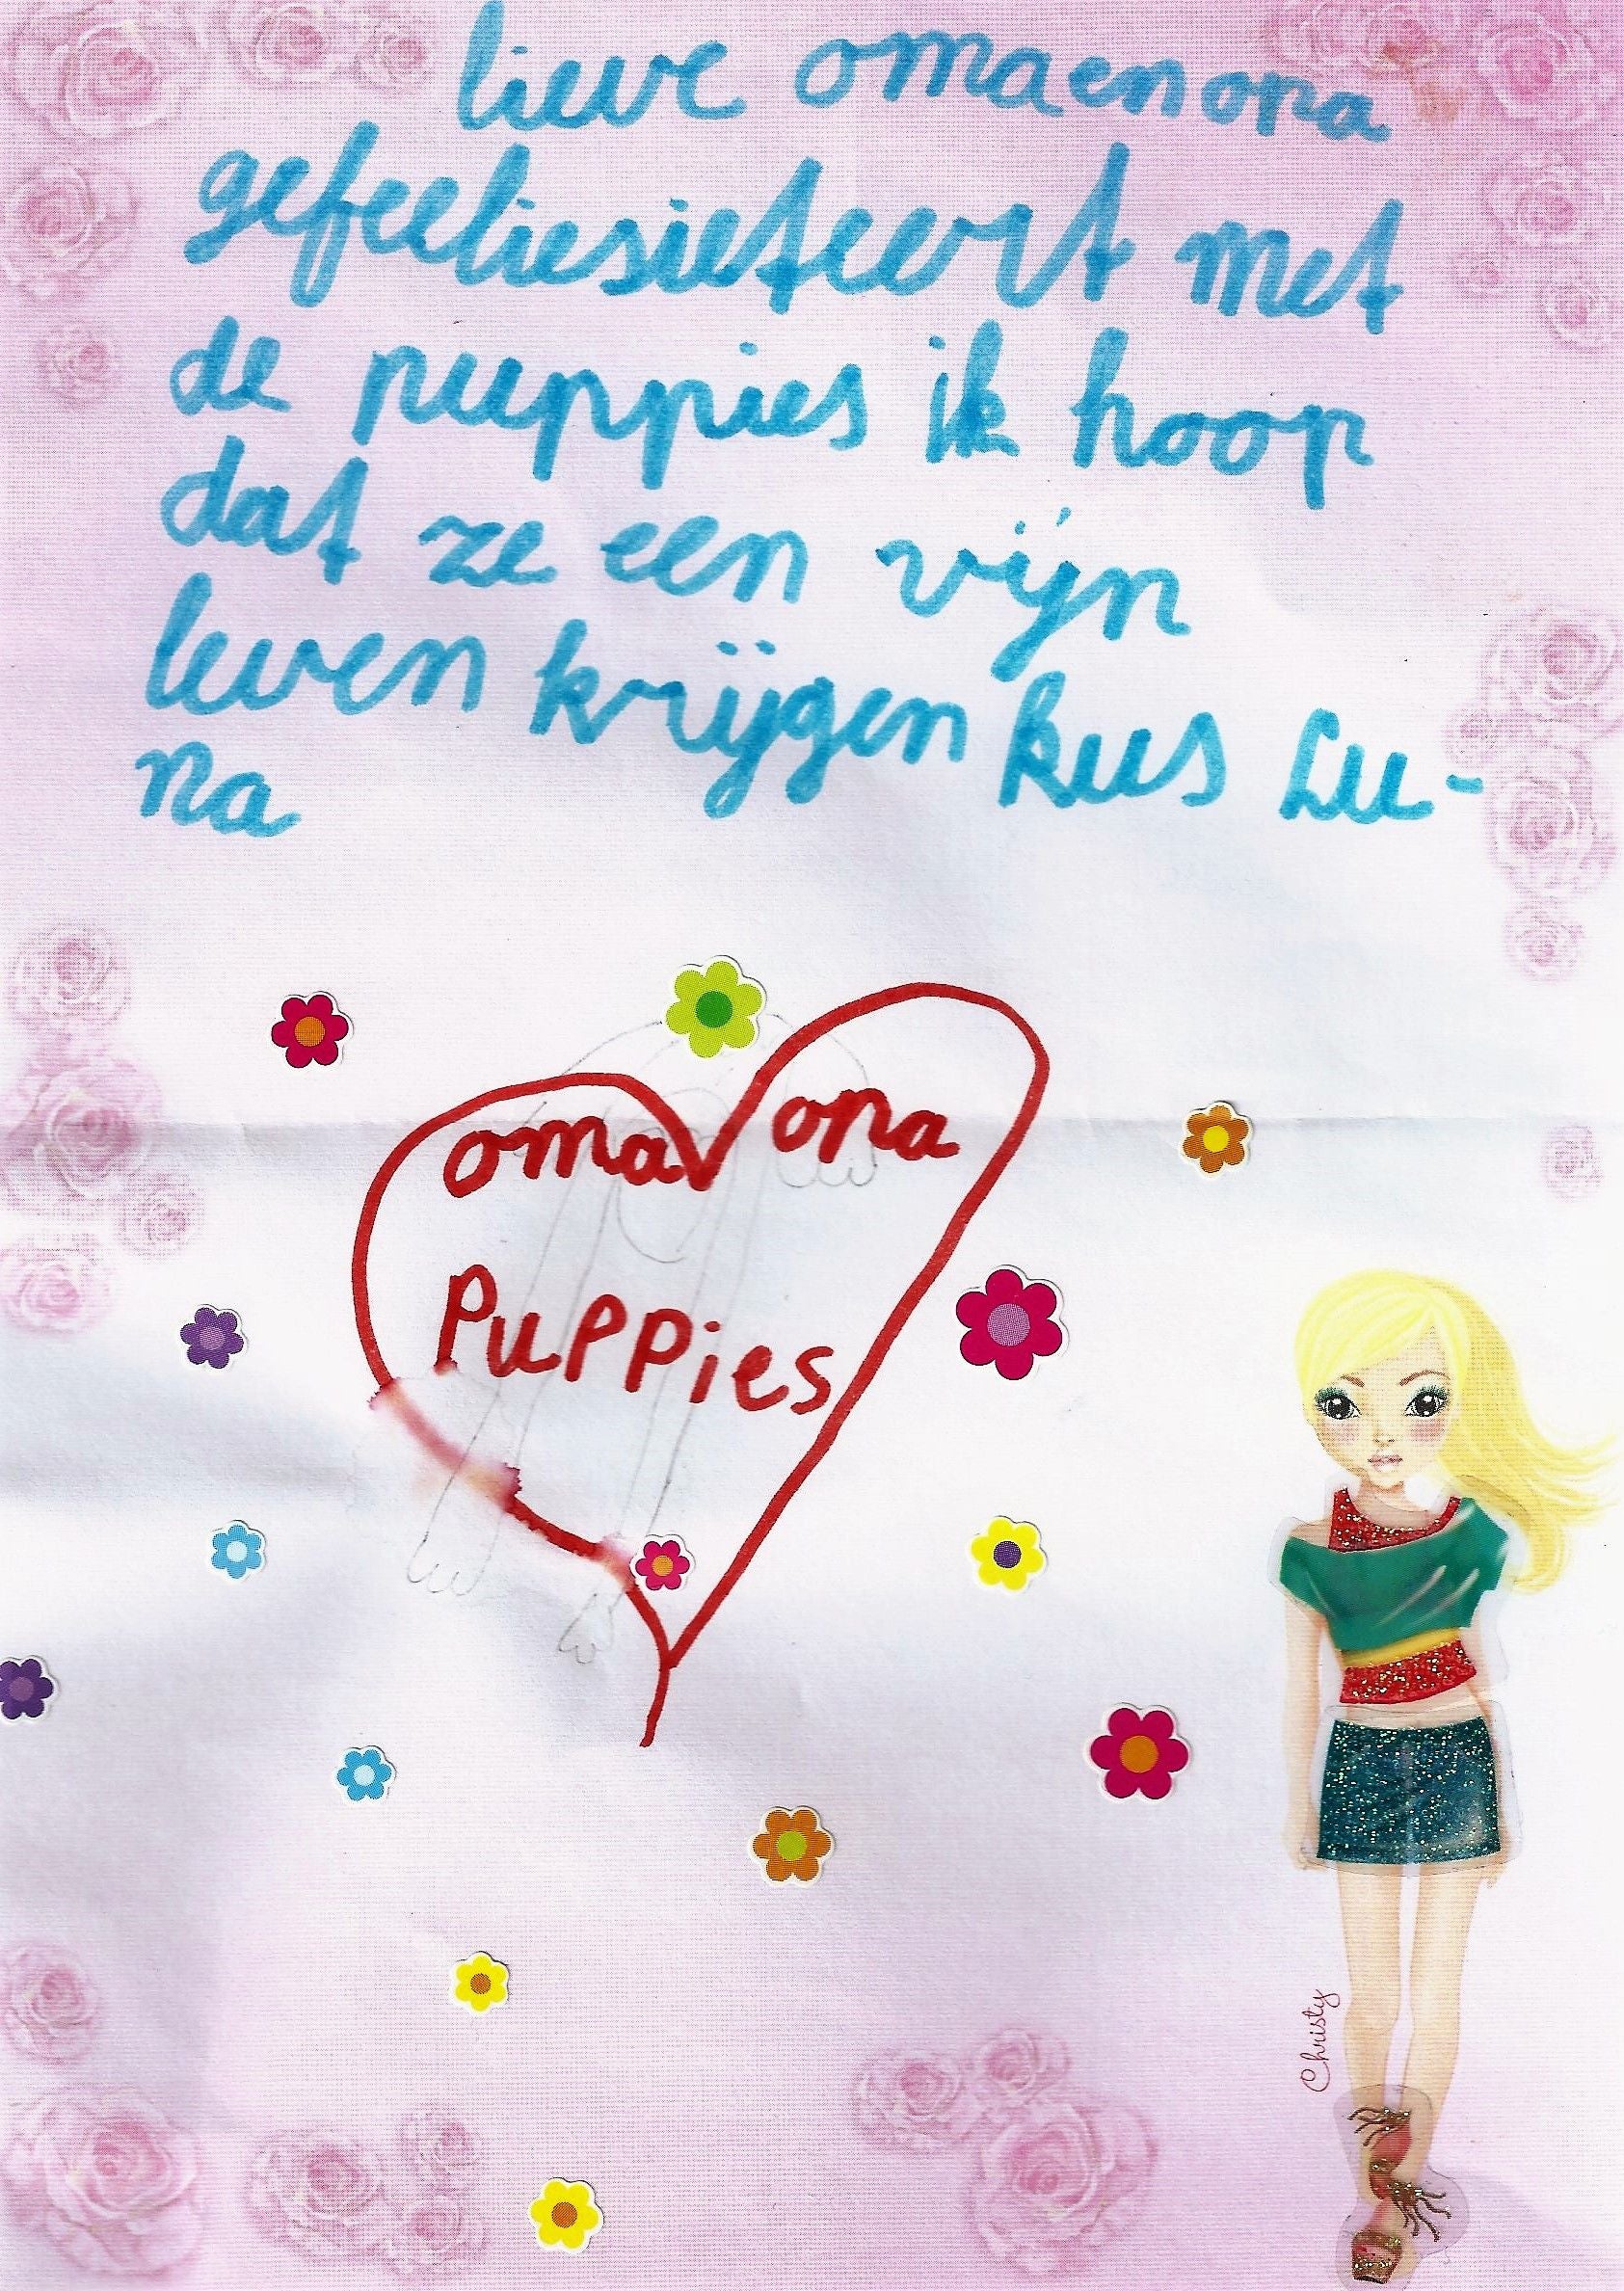 lieve oma en opa
gefeeliesieteert met
de puppies ik hoop
dat ze een vijn
leven krijgen kus Lu-
na
oma opa
Puppies
Christy